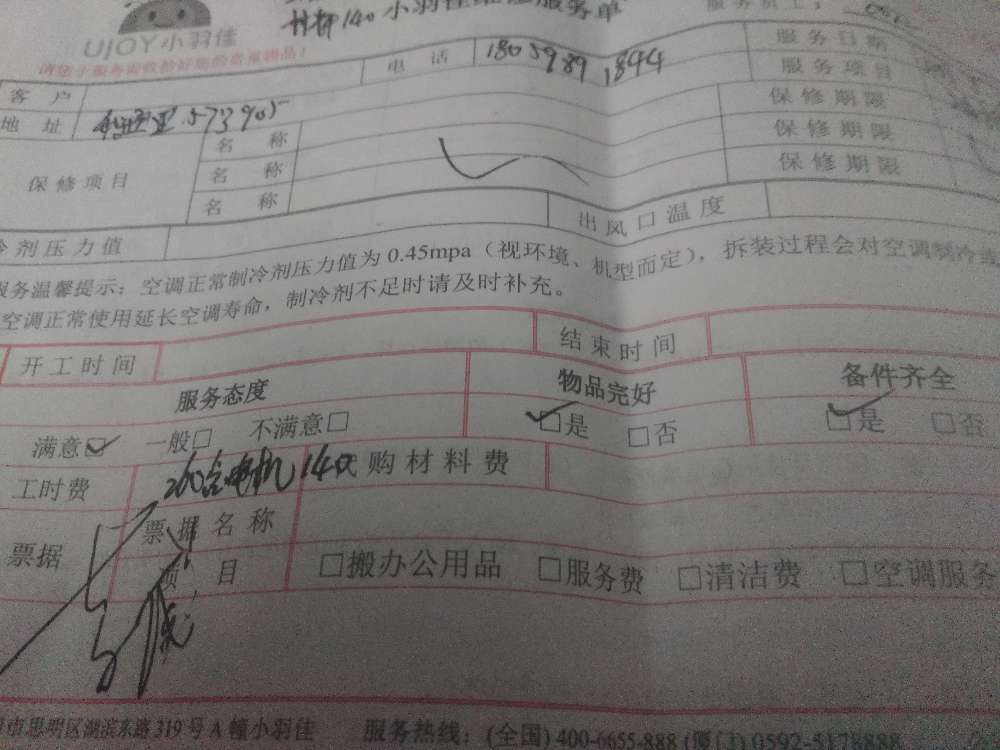 小羽佳维修服务单
服务员工:
UJOY小羽佳
客户
电话 18059891844
服务日期
服务项目
地址 573905
名称
保修期限
保修项目
名称
保修期限
名称
保修期限
冷剂压力值
出风口温度
服务温馨提示:空调正常制冷剂压力值为0.45mpa(视环境、机型而定),拆装过程会对空调制冷或
空调正常使用延长空调寿命,制冷剂不足时请及时补充。
开工时间
结束时间
服务态度
物品完好
备件齐全
满意☑ 一般□ 不满意□
☑是 □否
☑是 □否
工时费 260含电机140
代购材料费
票据
票据名称
项目
□搬办公用品 □服务费 □清洁费 □空调服务
市思明区湖滨东路319号A幢小羽佳 服务热线:(全国)400-6655-888(厦门)0592-5178888